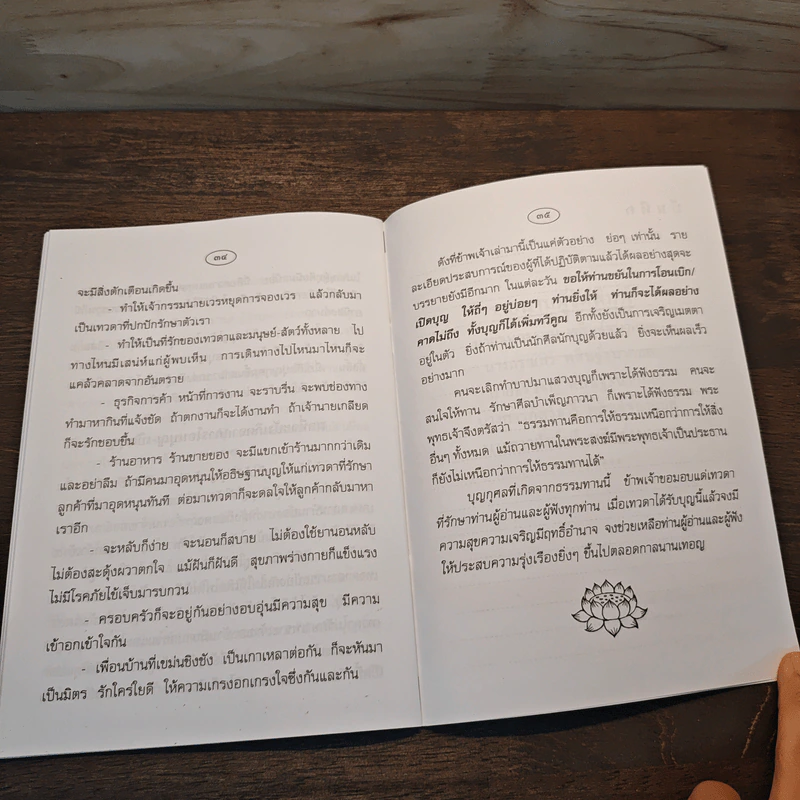 ๓๔
จะมีสิ่งตักเตือนเกิดขึ้น
- ทำให้เจ้ากรรมนายเวรหยุดการจองเวร แล้วกลับมา
เป็นเทวดาที่ปกปักรักษาตัวเรา
- ทำให้เป็นที่รักของเทวดาและมนุษย์-สัตว์ทั้งหลาย ไป
ทางไหนมีเสน่ห์แก่ผู้พบเห็น การเดินทางไปไหนมาไหนก็จะ
แคล้วคลาดจากอันตราย
- ธุรกิจการค้า หน้าที่การงาน จะราบรื่น จะพบช่องทาง
ทำมาหากินที่แจ้งชัด ถ้าตกงานก็จะได้งานทำ ถ้าเจ้านายเกลียด
ก็จะรักชอบขึ้น
- ร้านอาหาร ร้านขายของ จะมีแขกเข้าร้านมากกว่าเดิม
และอย่าลืม ถ้ามีคนมาอุดหนุนให้อธิษฐานบุญให้แก่เทวดาที่รักษา
ลูกค้าที่มาอุดหนุนทันที ต่อมาเทวดาก็จะดลใจให้ลูกค้ากลับมาหา
เราอีก
- จะหลับก็ง่าย จะนอนก็สบาย ไม่ต้องใช้ยานอนหลับ
ไม่ต้องสะดุ้งผวาตกใจ แม้ฝันก็ฝันดี สุขภาพร่างกายก็แข็งแรง
ไม่มีโรคภัยไข้เจ็บมารบกวน
- ครอบครัวก็จะอยู่กันอย่างอบอุ่นมีความสุข มีความ
เข้าอกเข้าใจกัน
- เพื่อนบ้านที่เขม่นชิงชัง เป็นเกาเหลาต่อกัน ก็จะหันมา
เป็นมิตร รักใคร่ใยดี ให้ความเกรงอกเกรงใจซึ่งกันและกัน
๓๕
ดังที่ข้าพเจ้าเล่ามานี้เป็นแค่ตัวอย่าง ย่อๆ เท่านั้น ราย
ละเอียดประสบการณ์ของผู้ที่ได้ปฏิบัติตามแล้วได้ผลอย่างสุดจะ
บรรยายยังมีอีกมาก ในแต่ละวัน ขอให้ท่านขยันในการโอนเบิก/
เปิดบุญ ให้ถี่ๆ อยู่บ่อยๆ ท่านยิ่งให้ ท่านก็จะได้ผลอย่าง
คาดไม่ถึง ทั้งบุญก็ได้เพิ่มทวีคูณ อีกทั้งยังเป็นการเจริญเมตตา
อยู่ในตัว ยิ่งถ้าท่านเป็นนักศีลนักบุญด้วยแล้ว ยิ่งจะเห็นผลเร็ว
อย่างมาก
คนจะเลิกทำบาปมาแสวงบุญก็เพราะได้ฟังธรรม คนจะ
สนใจให้ทาน รักษาศีลบำเพ็ญภาวนา ก็เพราะได้ฟังธรรม พระ
พุทธเจ้าจึงตรัสว่า "ธรรมทานคือการให้ธรรมเหนือกว่าการให้สิ่ง
อื่นๆ ทั้งหมด แม้ถวายทานในพระสงฆ์มีพระพุทธเจ้าเป็นประธาน
ก็ยังไม่เหนือกว่าการให้ธรรมทานได้"
บุญกุศลที่เกิดจากธรรมทานนี้ ข้าพเจ้าขอมอบแด่เทวดา
ที่รักษาท่านผู้อ่านและผู้ฟังทุกท่าน เมื่อเทวดาได้รับบุญนี้แล้วจงมี
ความสุขความเจริญมีฤทธิ์อำนาจ จงช่วยเหลือท่านผู้อ่านและผู้ฟัง
ให้ประสบความรุ่งเรืองยิ่งๆ ขึ้นไปตลอดกาลนานเทอญ